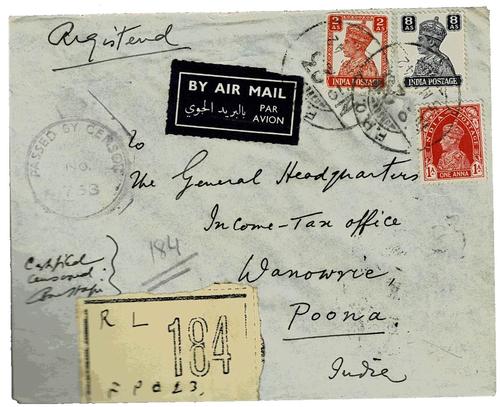 Registered
2 AS
2 AS
INDIA POSTAGE
8 AS
8 AS
INDIA POSTAGE
BY AIR MAIL
بالبريد الجوي
PAR AVION
INDIA POSTAGE
1A
1A
ONE ANNA
PASSED BY CENSOR
NO.
To
The General Headquarters
Income-Tax office
Wanowrie,
Poona.
India
184
Certified
censored.
R L 184
F P O 23.